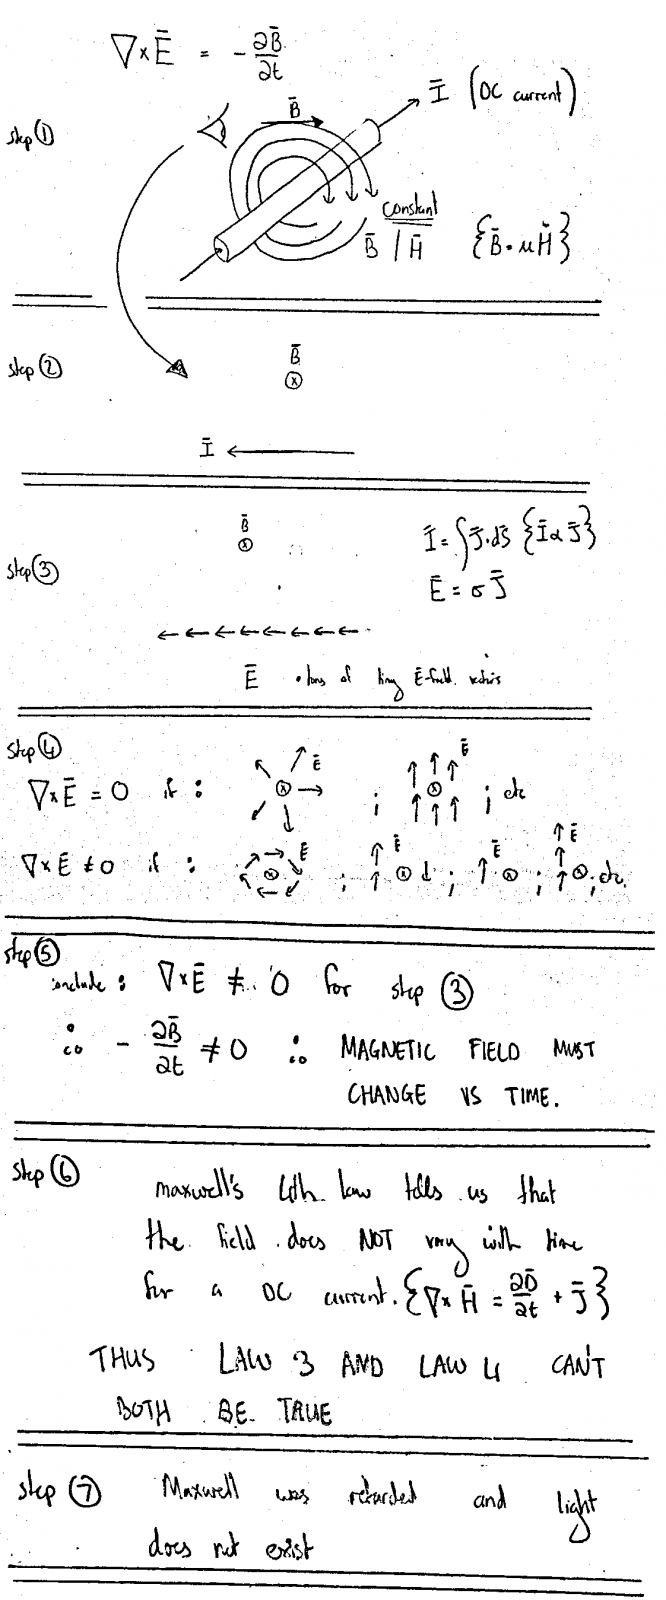 ∇×Ē = - ∂B̄/∂t
Ī (DC current)
step ①
B̄
constant
B̄ / H̄ {B̄ = μH̄}
step ②
B̄
Ī
B̄
Ī = ∫J̄·dS̄ {Ī α J̄}
step ③
Ē = σJ̄
Ē • tons of tiny Ē-field vectors
step ④
∇×Ē = 0 if : Ē ; Ē ; etc
∇×Ē ≠ 0 if : Ē ; Ē ; Ē ; Ē ; etc.
step ⑤
conclude : ∇×Ē ≠ 0 for step ③
∴ - ∂B̄/∂t ≠ 0 ∴ MAGNETIC FIELD MUST
CHANGE VS TIME.
step ⑥
maxwell's 4th law tells us that
the field does NOT vary with time
for a DC current. {∇×H̄ = ∂D̄/∂t + J̄}
THUS LAW 3 AND LAW 4 CAN'T
BOTH BE TRUE
step ⑦ Maxwell was retarded and light
does not exist